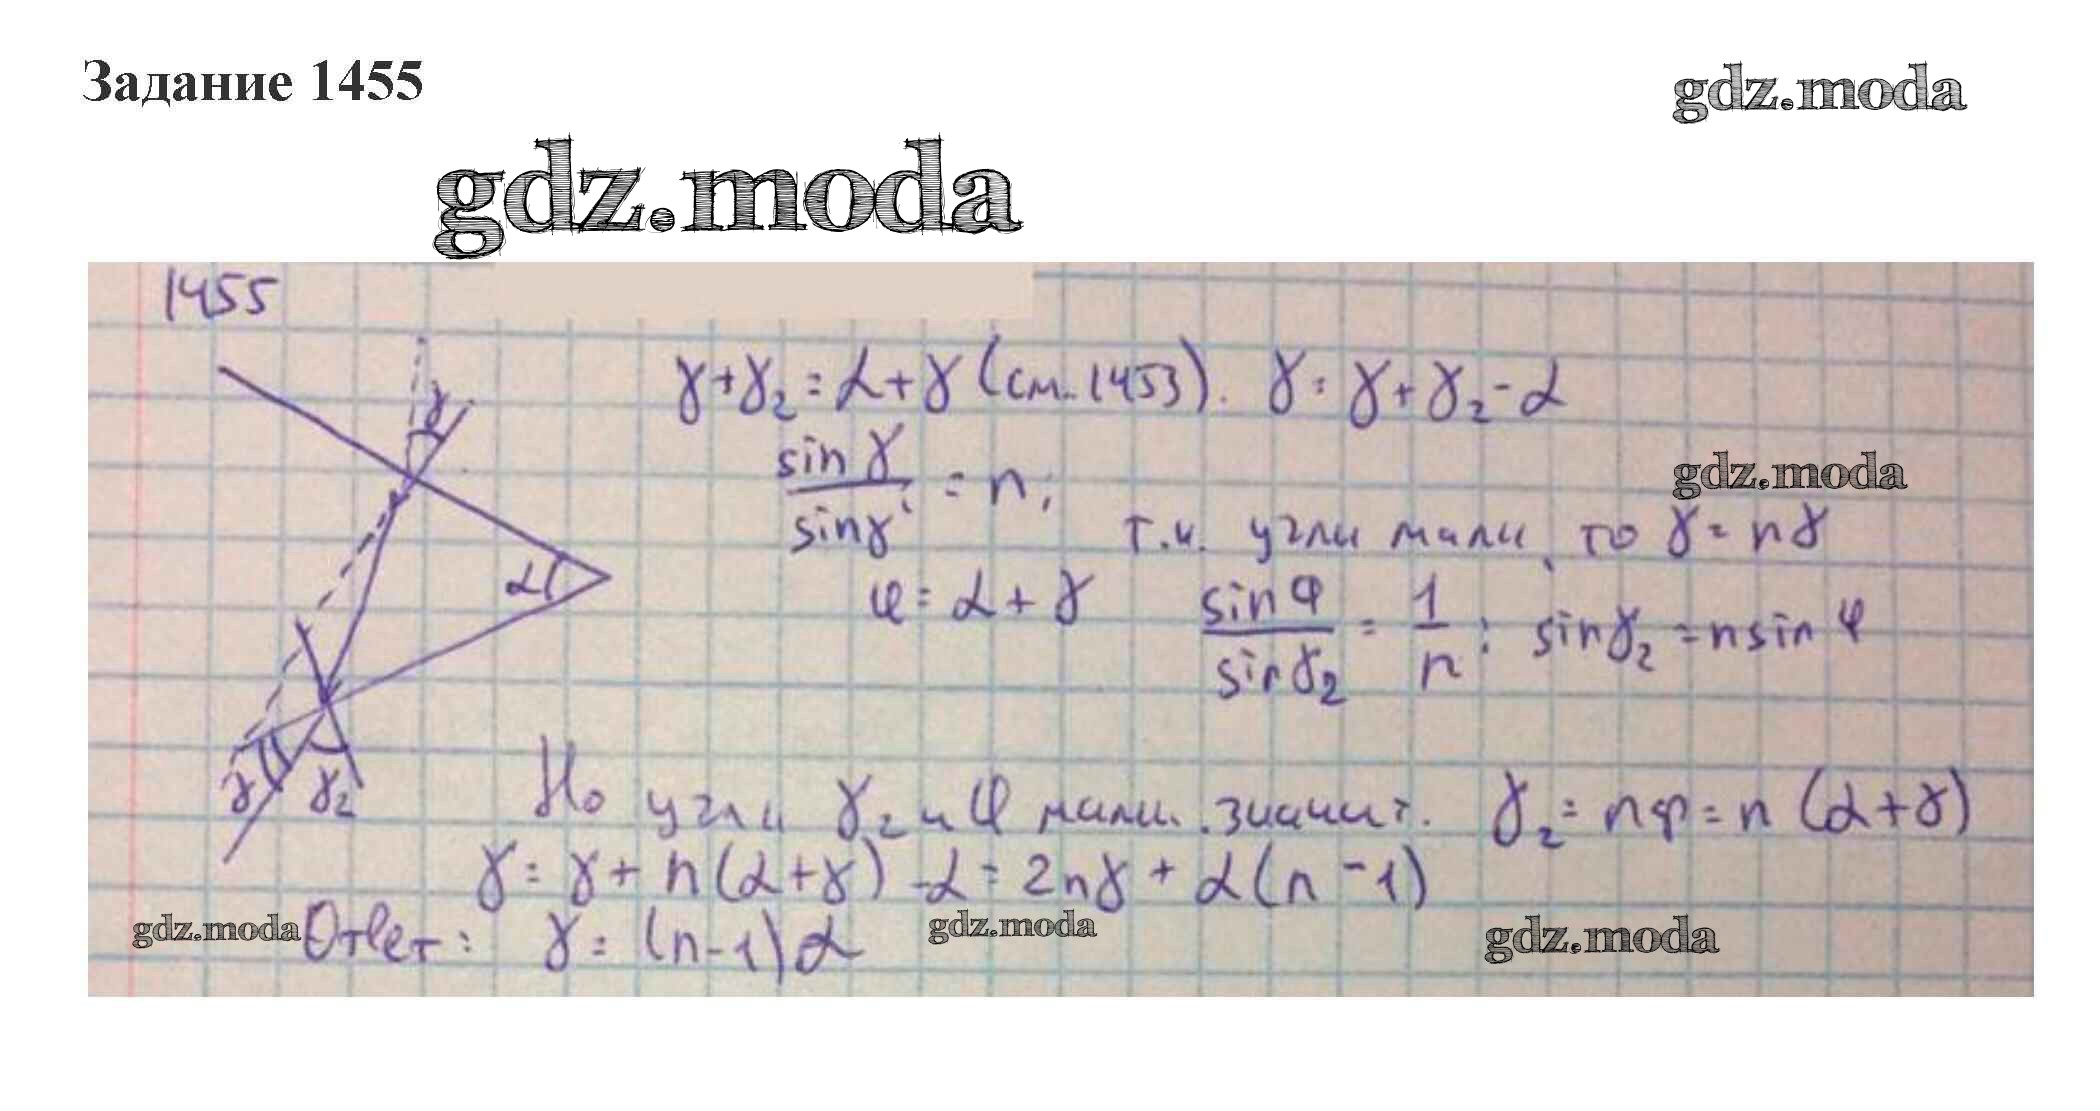 Задание 1455
gdz.moda
gdz.moda
1455
γ
α
γ γ₂
γ+γ₂ = α+γ (см. 1453). γ = γ+γ₂-α
gdz.moda
sin γ / sin γ' = n;
т.к. углы малы, то γ = nγ
φ = α+γ sin φ / sin γ₂ = 1/n; sin γ₂ = n sin φ
Но углы γ₂ и φ малы. значит. γ₂ = nφ = n(α+γ)
γ = γ+n(α+γ)-α = 2nγ + α(n-1)
gdz.moda Ответ: γ = (n-1)α gdz.moda gdz.moda